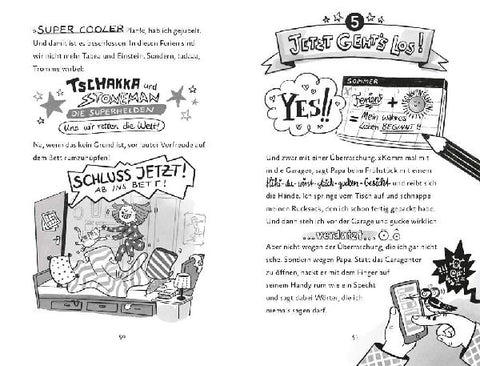 »SUPER COOLER Plan!«, hab ich gejubelt.
Und damit ist es beschlossen. In diesen Ferien sind
wir nicht mehr Tabea und Einstein. Sondern, tadaaa,
Trommelwirbel:
TSCHAKKA und
STONEMAN
DIE SUPERHELDEN
Und wir retten die Welt!
Na, wenn das kein Grund ist, vor lauter Vorfreude auf
dem Bett rumzuhüpfen!
SCHLUSS JETZT!
AB INS BETT!
50
5
JETZT GEHT'S LOS!
YES!!
SOMMER
Ferien
+
=
Mein wahres
Leben BEGINNT!
Und zwar mit einer Überraschung. »Komm mal mit
in die Garage«, sagt Papa beim Frühstück mit einem
Hihi-du-wirst-gleich-gucken-Gesicht und reibt sich
die Hände. Ich springe vom Tisch auf und schnappe
meinen Rucksack, den ich schon fertig gepackt habe.
Und dann steh ich vor der Garage und gucke wirklich
...verdutzt...
Aber nicht wegen der Überraschung, die ich gar nicht
sehe. Sondern wegen Papa. Statt das Garagentor
zu öffnen, hackt er mit dem Finger auf
seinem Handy rum wie ein Specht
und sagt dabei Wörter, die ich
niemals sagen darf.
51